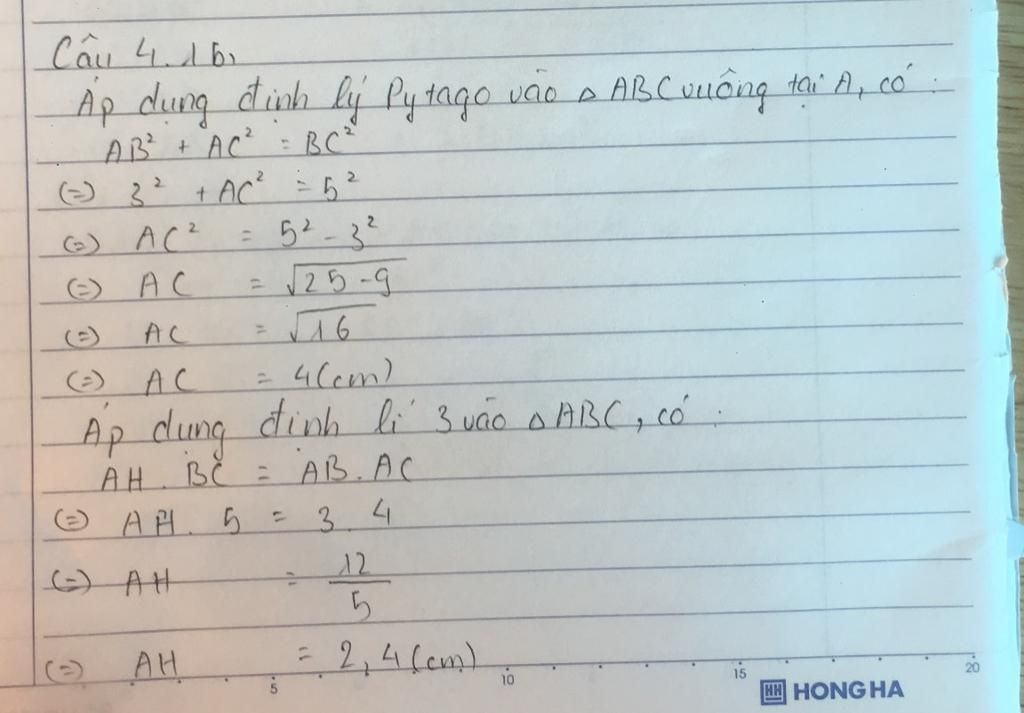 Câu 4.1b,
Áp dụng định lý Pytago vào △ ABC vuông tại A, có :
AB² + AC² = BC²
(=) 3² + AC² = 5²
(=) AC² = 5² - 3²
(=) AC = √25-9
(=) AC = √16
(=) AC = 4(cm)
Áp dụng định lí 3 vào △ ABC, có :
AH . BC = AB . AC
(=) AH . 5 = 3 . 4
(=) AH = 12/5
(=) AH = 2,4(cm)
5 10 15 20
HH HONG HA